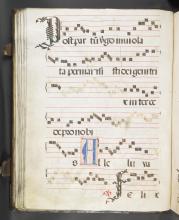 Post par tū ỹgo inviola
ta permansisti dei genitri
x interce
de pro nobis
Al le lu ya
F e li x